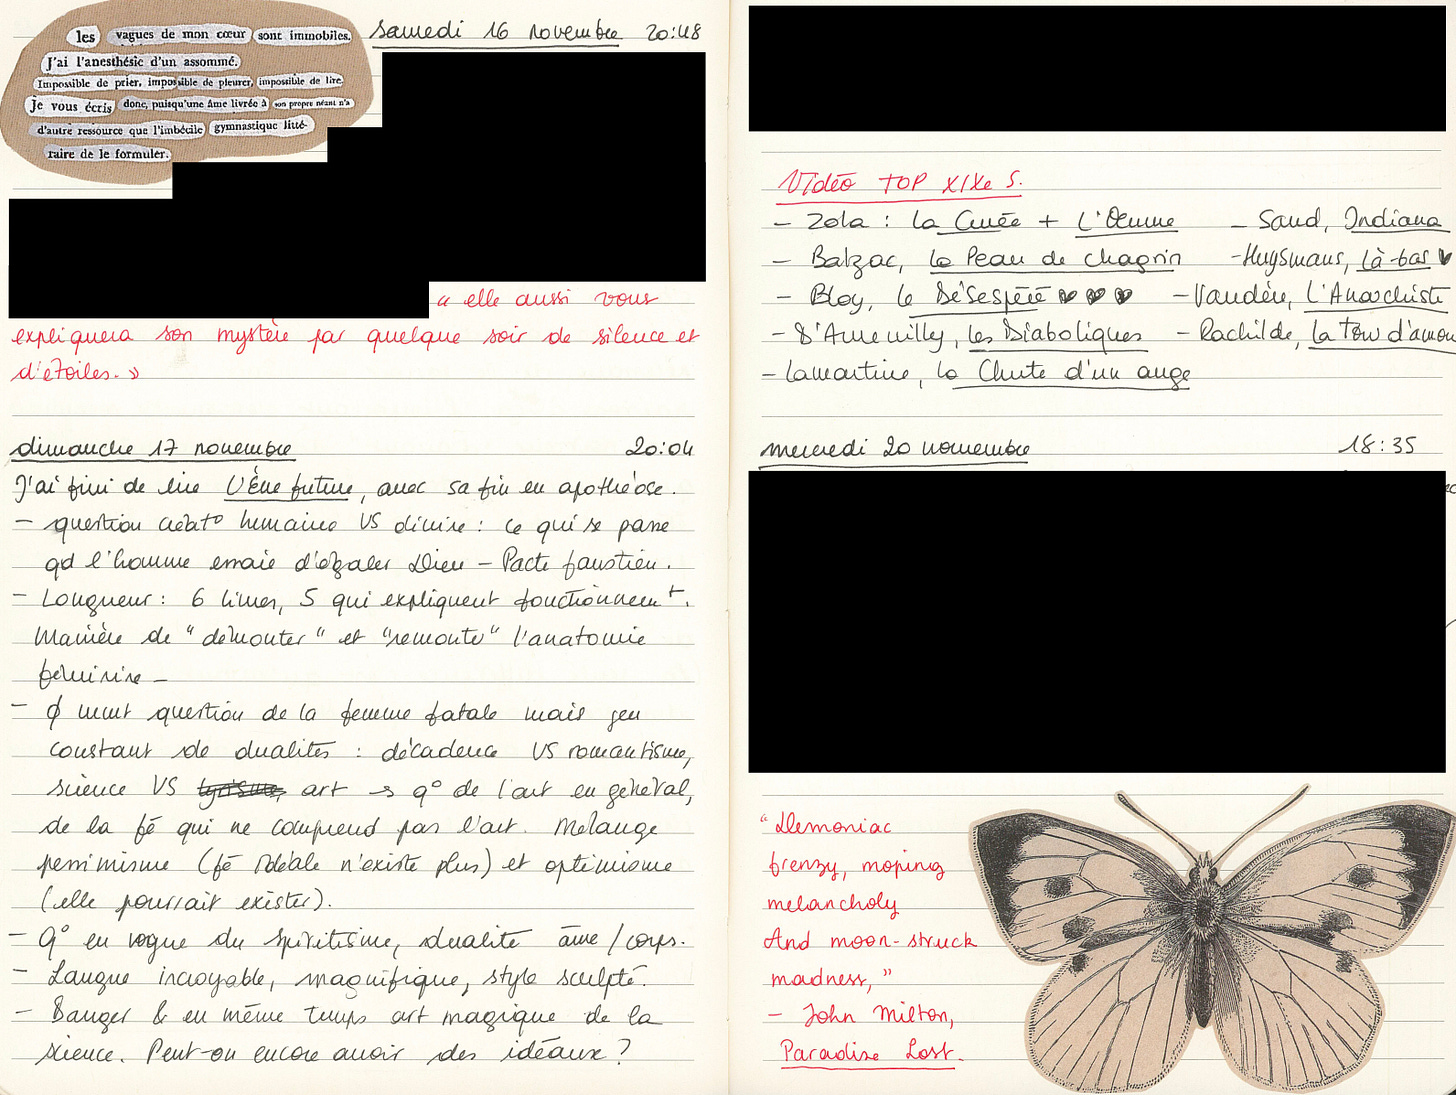 les vagues de mon cœur sont immobiles.
J'ai l'anesthésie d'un assommé.
Impossible de prier, impossible de pleurer, impossible de lire.
Je vous écris donc, puisqu'une âme livrée à son propre néant n'a
d'autre ressource que l'imbécile gymnastique litté-
raire de le formuler.
samedi 16 novembre 20:48
« elle aussi vous
expliquera son mystère par quelque soir de silence et
d'étoiles. »
dimanche 17 novembre 20:04
J'ai fini de lire L'Ève future, avec sa fin en apothéose.
– question créat° humaine VS divine : ce qui se passe
qd l'homme essaie d'égaler Dieu – Pacte faustien.
– Longueur : 6 livres, 5 qui expliquent fonctionnemt.
Manière de "démonter" et "remonter" l'anatomie
féminine –
– ϕ mmt question de la femme fatale mais jeu
constant de dualités : décadence VS romantisme,
science VS art → q° de l'art en général,
de la fê qui ne comprend pas l'art. Mélange
pessimisme (fê idéale n'existe plus) et optimisme
(elle pourrait exister).
– q° en vogue du spiritisme, dualité âme/corps.
– Langue incroyable, magnifique, style sculpté.
– Danger & en même temps art magique de la
science. Peut-on encore avoir des idéaux ?
Vidéo TOP XIXe S.
– Zola : La Curée + L'Œuvre – Sand, Indiana
– Balzac, la Peau de chagrin -Huysmans, Là-bas ♥
– Bloy, le Désespéré ♥ ♥ ♥ – Vandère, L'Anarchiste
– D'Aurevilly, les Diaboliques – Rachilde, la Tour d'amour
– Lamartine, la Chute d'un ange
mercredi 20 novembre 18:35
"Demoniac
frenzy, moping
melancholy
And moon-struck
madness,"
– John Milton,
Paradise Lost.